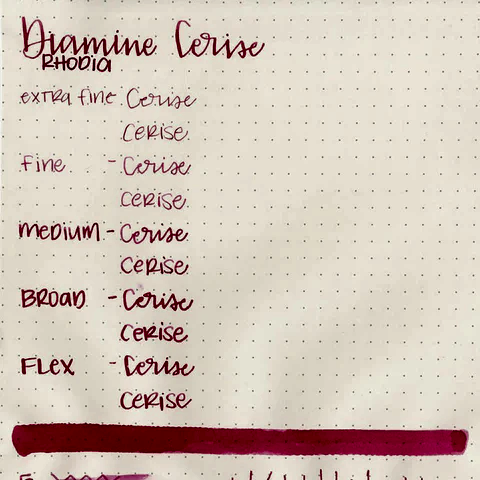 Diamine Cerise
RHODIA
extra fine - Cerise
CERISE
Fine - Cerise
CERISE
medium - Cerise
CERISE
BROAD - Cerise
CERISE
FLEX - Cerise
CERISE